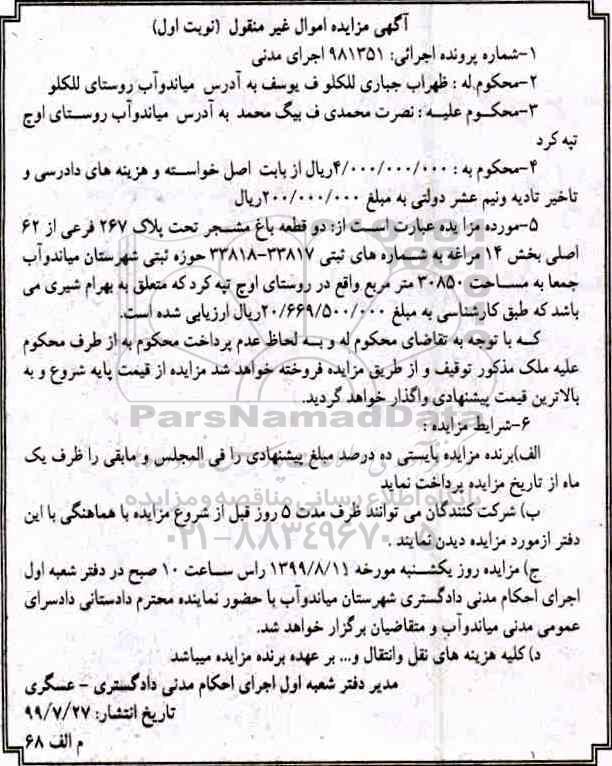 آگهی مزایده اموال غیر منقول (نوبت اول)
۱-شماره پرونده اجرائی: ۹۸۱۳۵۱ اجرای مدنی
۲-محکوم له : ظهراب جباری للکلو ف یوسف به آدرس میاندوآب روستای للکلو
۳-محکوم علیه : نصرت محمدی ف بیگ محمد به آدرس میاندوآب روستای اوج
تپه کرد
۴-محکوم به : ۴/۰۰۰/۰۰۰/۰۰۰ریال از بابت اصل خواسته و هزینه های دادرسی و
تاخیر تادیه ونیم عشر دولتی به مبلغ ۲۰۰/۰۰۰/۰۰۰ریال
۵-مورده مزا یده عبارت است از: دو قطعه باغ مشجر تحت پلاک ۲۶۷ فرعی از ۶۲
اصلی بخش ۱۴ مراغه به شماره های ثبتی ۳۳۸۱۷-۳۳۸۱۸ حوزه ثبتی شهرستان میاندوآب
جمعا به مساحت ۳۰۸۵۰ متر مربع واقع در روستای اوج تپه کرد که متعلق به بهرام شیری می
باشد که طبق کارشناسی به مبلغ ۲۰/۶۶۹/۵۰۰/۰۰۰ریال ارزیابی شده است.
که با توجه به تقاضای محکوم له و به لحاظ عدم پرداخت محکوم به از طرف محکوم
علیه ملک مذکور توقیف و از طریق مزایده فروخته خواهد شد مزایده از قیمت پایه شروع و به
بالاترین قیمت پیشنهادی واگذار خواهد گردید.
ParsNamadData
۶-شرایط مزایده :
الف)برنده مزایده بایستی ده درصد مبلغ پیشنهادی را فی المجلس و مابقی را ظرف یک
ماه از تاریخ مزایده پرداخت نماید
پایگاه اطلاع رسانی مناقصه و مزایده
ب) شرکت کنندگان می توانند ظرف مدت ۵ روز قبل از شروع مزایده با هماهنگی با این
دفتر ازمورد مزایده دیدن نمایند .
۰۲۱-۸۸۳۴۹۶۷۰-۵
ج) مزایده روز یکشنبه مورخه ۱۳۹۹/۸/۱۱ راس ساعت ۱۰ صبح در دفتر شعبه اول
اجرای احکام مدنی دادگستری شهرستان میاندوآب با حضور نماینده محترم دادستانی دادسرای
عمومی مدنی میاندوآب و متقاضیان برگزار خواهد شد.
د) کلیه هزینه های نقل وانتقال و... بر عهده برنده مزایده میباشد
مدیر دفتر شعبه اول اجرای احکام مدنی دادگستری - عسگری
تاریخ انتشار: ۹۹/۷/۲۷
م الف ۶۸